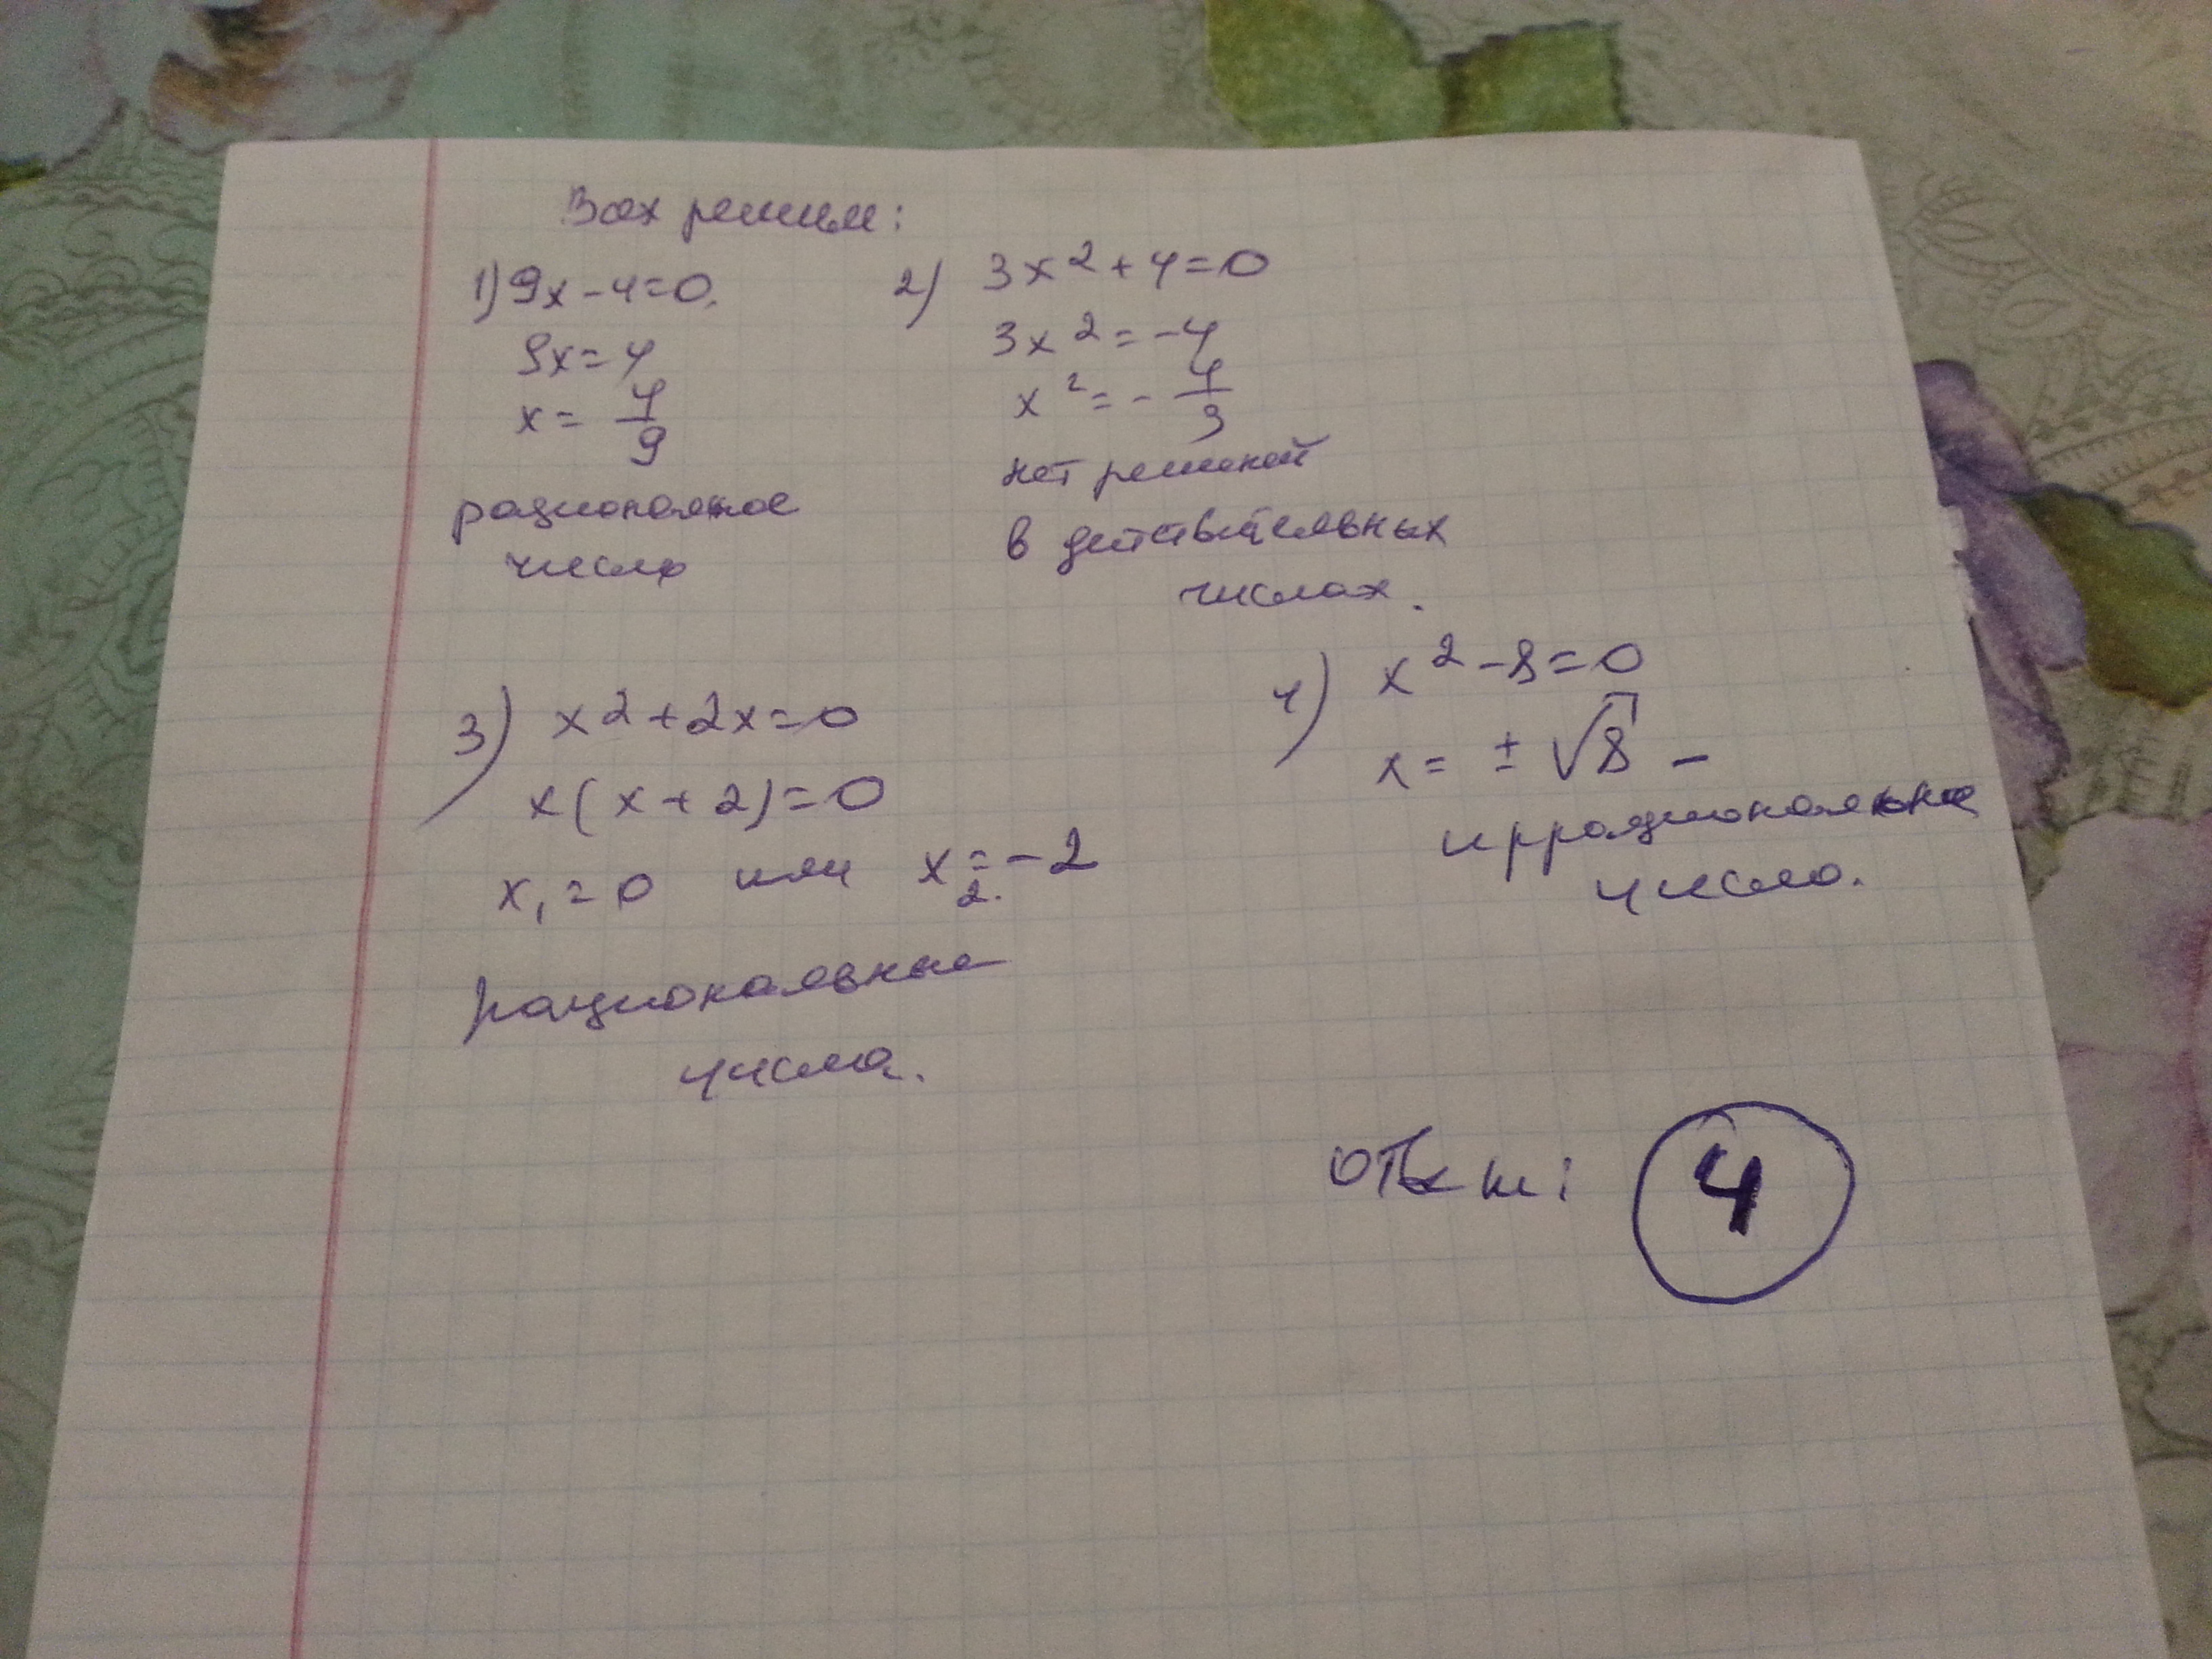 Всех решим:
1) 9x-4=0.
9x=4
x= 4/9
рациональное
число
2) 3x²+4=0
3x²=-4
x²=-4/3
нет решений
в действительных
числах.
3) x²+2x=0
x(x+2)=0
x₁=0 или x₂=-2
рациональные
числа.
4) x²-8=0
x= ±√8 -
иррациональные
число.
ответ: 4